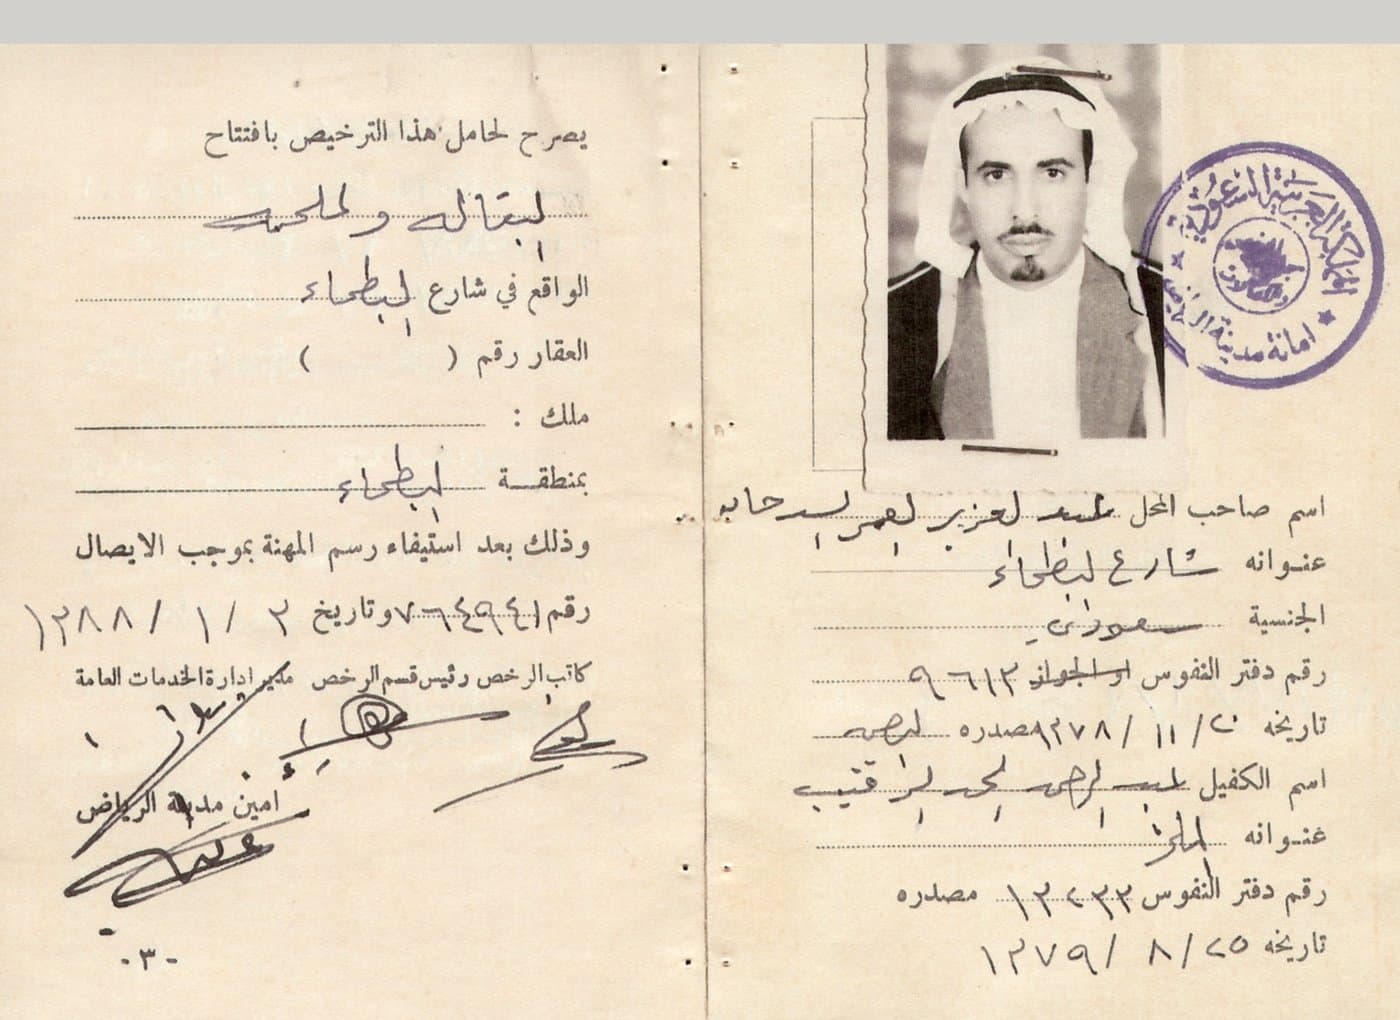 المملكة العربية السعودية
امانة مدينة الرياض
اسم صاحب المحل عبد العزيز العمر السرحان
عنوانه شارع البطحاء
الجنسية سعودي
رقم دفتر النفوس او الجواز ٩٦١٣
تاريخه ٢٠ / ١١ / ١٣٧٨ مصدره
اسم الكفيل عبد الرحمن الحمد
عنوانه الملز
رقم دفتر النفوس ١٣٢٣٣ مصدره
تاريخه ٢٥ / ٨ / ١٣٧٩
يصرح لحامل هذا الترخيص بافتتاح
البقاله والملحمه
الواقع في شارع البطحاء
العقار رقم ( )
ملك :
بمنطقة البطحاء
وذلك بعد استيفاء رسم المهنة بموجب الايصال
رقم ٧٦٤٩٤١ وتاريخ ٣ / ١ / ١٣٨٨
كاتب الرخص رئيس قسم الرخص مدير ادارة الخدمات العامة
أمين مدينة الرياض
- ٣ -